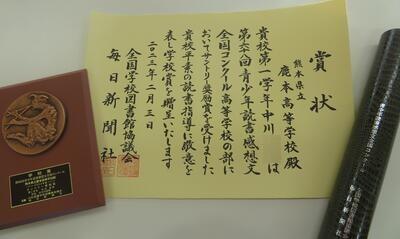 賞状
熊本県立
鹿本高等学校殿
貴校第一学年中川 は
第六八回青少年読書感想文
全国コンクール高等学校の部に
おいてサントリー奨励賞を受けました
貴校平素の読書指導に敬意を
表し学校賞を贈呈いたします
二〇二三年二月三日
全国学校図書館協議会
毎日新聞社
学校賞